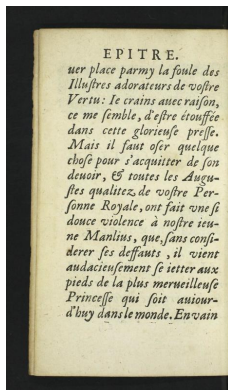 EPITRE.
uer place parmy la foule des
Illuſtres adorateurs de voſtre
Vertu: Ie crains auec raiſon,
ce me ſemble, d'eſtre étouffée
dans cette glorieuſe preſſe.
Mais il faut oſer quelque
choſe pour s'acquitter de ſon
deuoir, & toutes les Augu-
ſtes qualitez de voſtre Per-
ſonne Royale, ont fait vne ſi
douce violence à noſtre ieu-
ne Manlius, que, ſans conſi-
derer ſes deffauts, il vient
audacieuſement ſe ietter aux
pieds de la plus merueilleuſe
Princeſſe qui ſoit auiour-
d'huy dans le monde. En vain